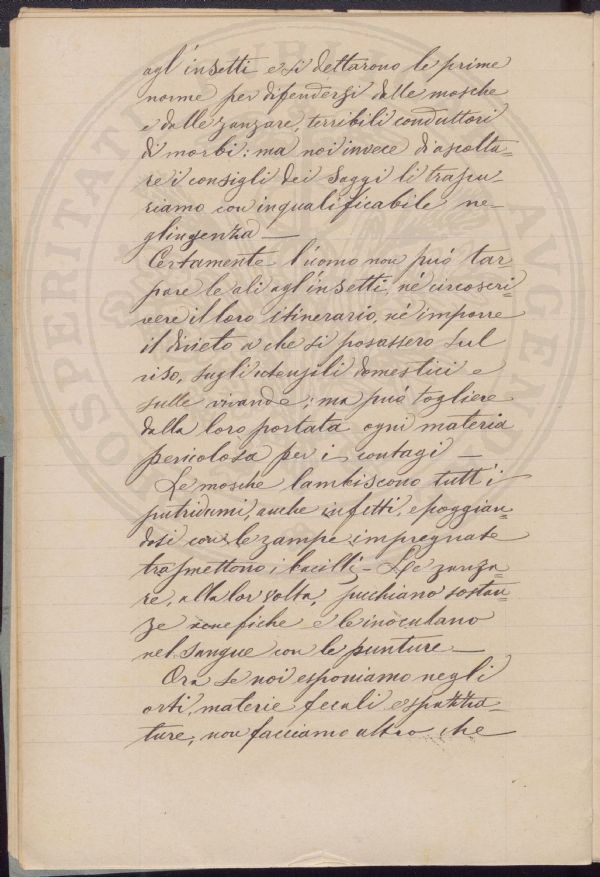 agl'insetti e si dettarono le prime
norme per difendersi dalle mosche
e dalle zanzare, terribili conduttori
di morbi: ma noi invece di ascolta-
re i consigli dei Saggi li trascu-
riamo con inqualificabile ne-
gligenza —
Certamente l'uomo non può tar-
pare le ali agl'insetti, né circoscri-
vere il loro itinerario, né imporre
il divieto a che si posassero sul
viso, sugli utensili domestici e
sulle vivande; ma può togliere
dalla loro portata ogni materia
pericolosa per i contagi —
Le mosche lambiscono tutt'i
putridumi, anche infetti, e poggian-
dosi con le zampe impregnate
trasmettono i bacilli — Le zanza-
re, alla lor volta, succhiano sostan-
ze venefiche e le inoculano
nel sangue con le punture —
Ora se noi esponiamo negli
orti, materie fecali e spazza-
ture, non facciamo altro che
PROSPERITATI PUBLI AVGENDAE